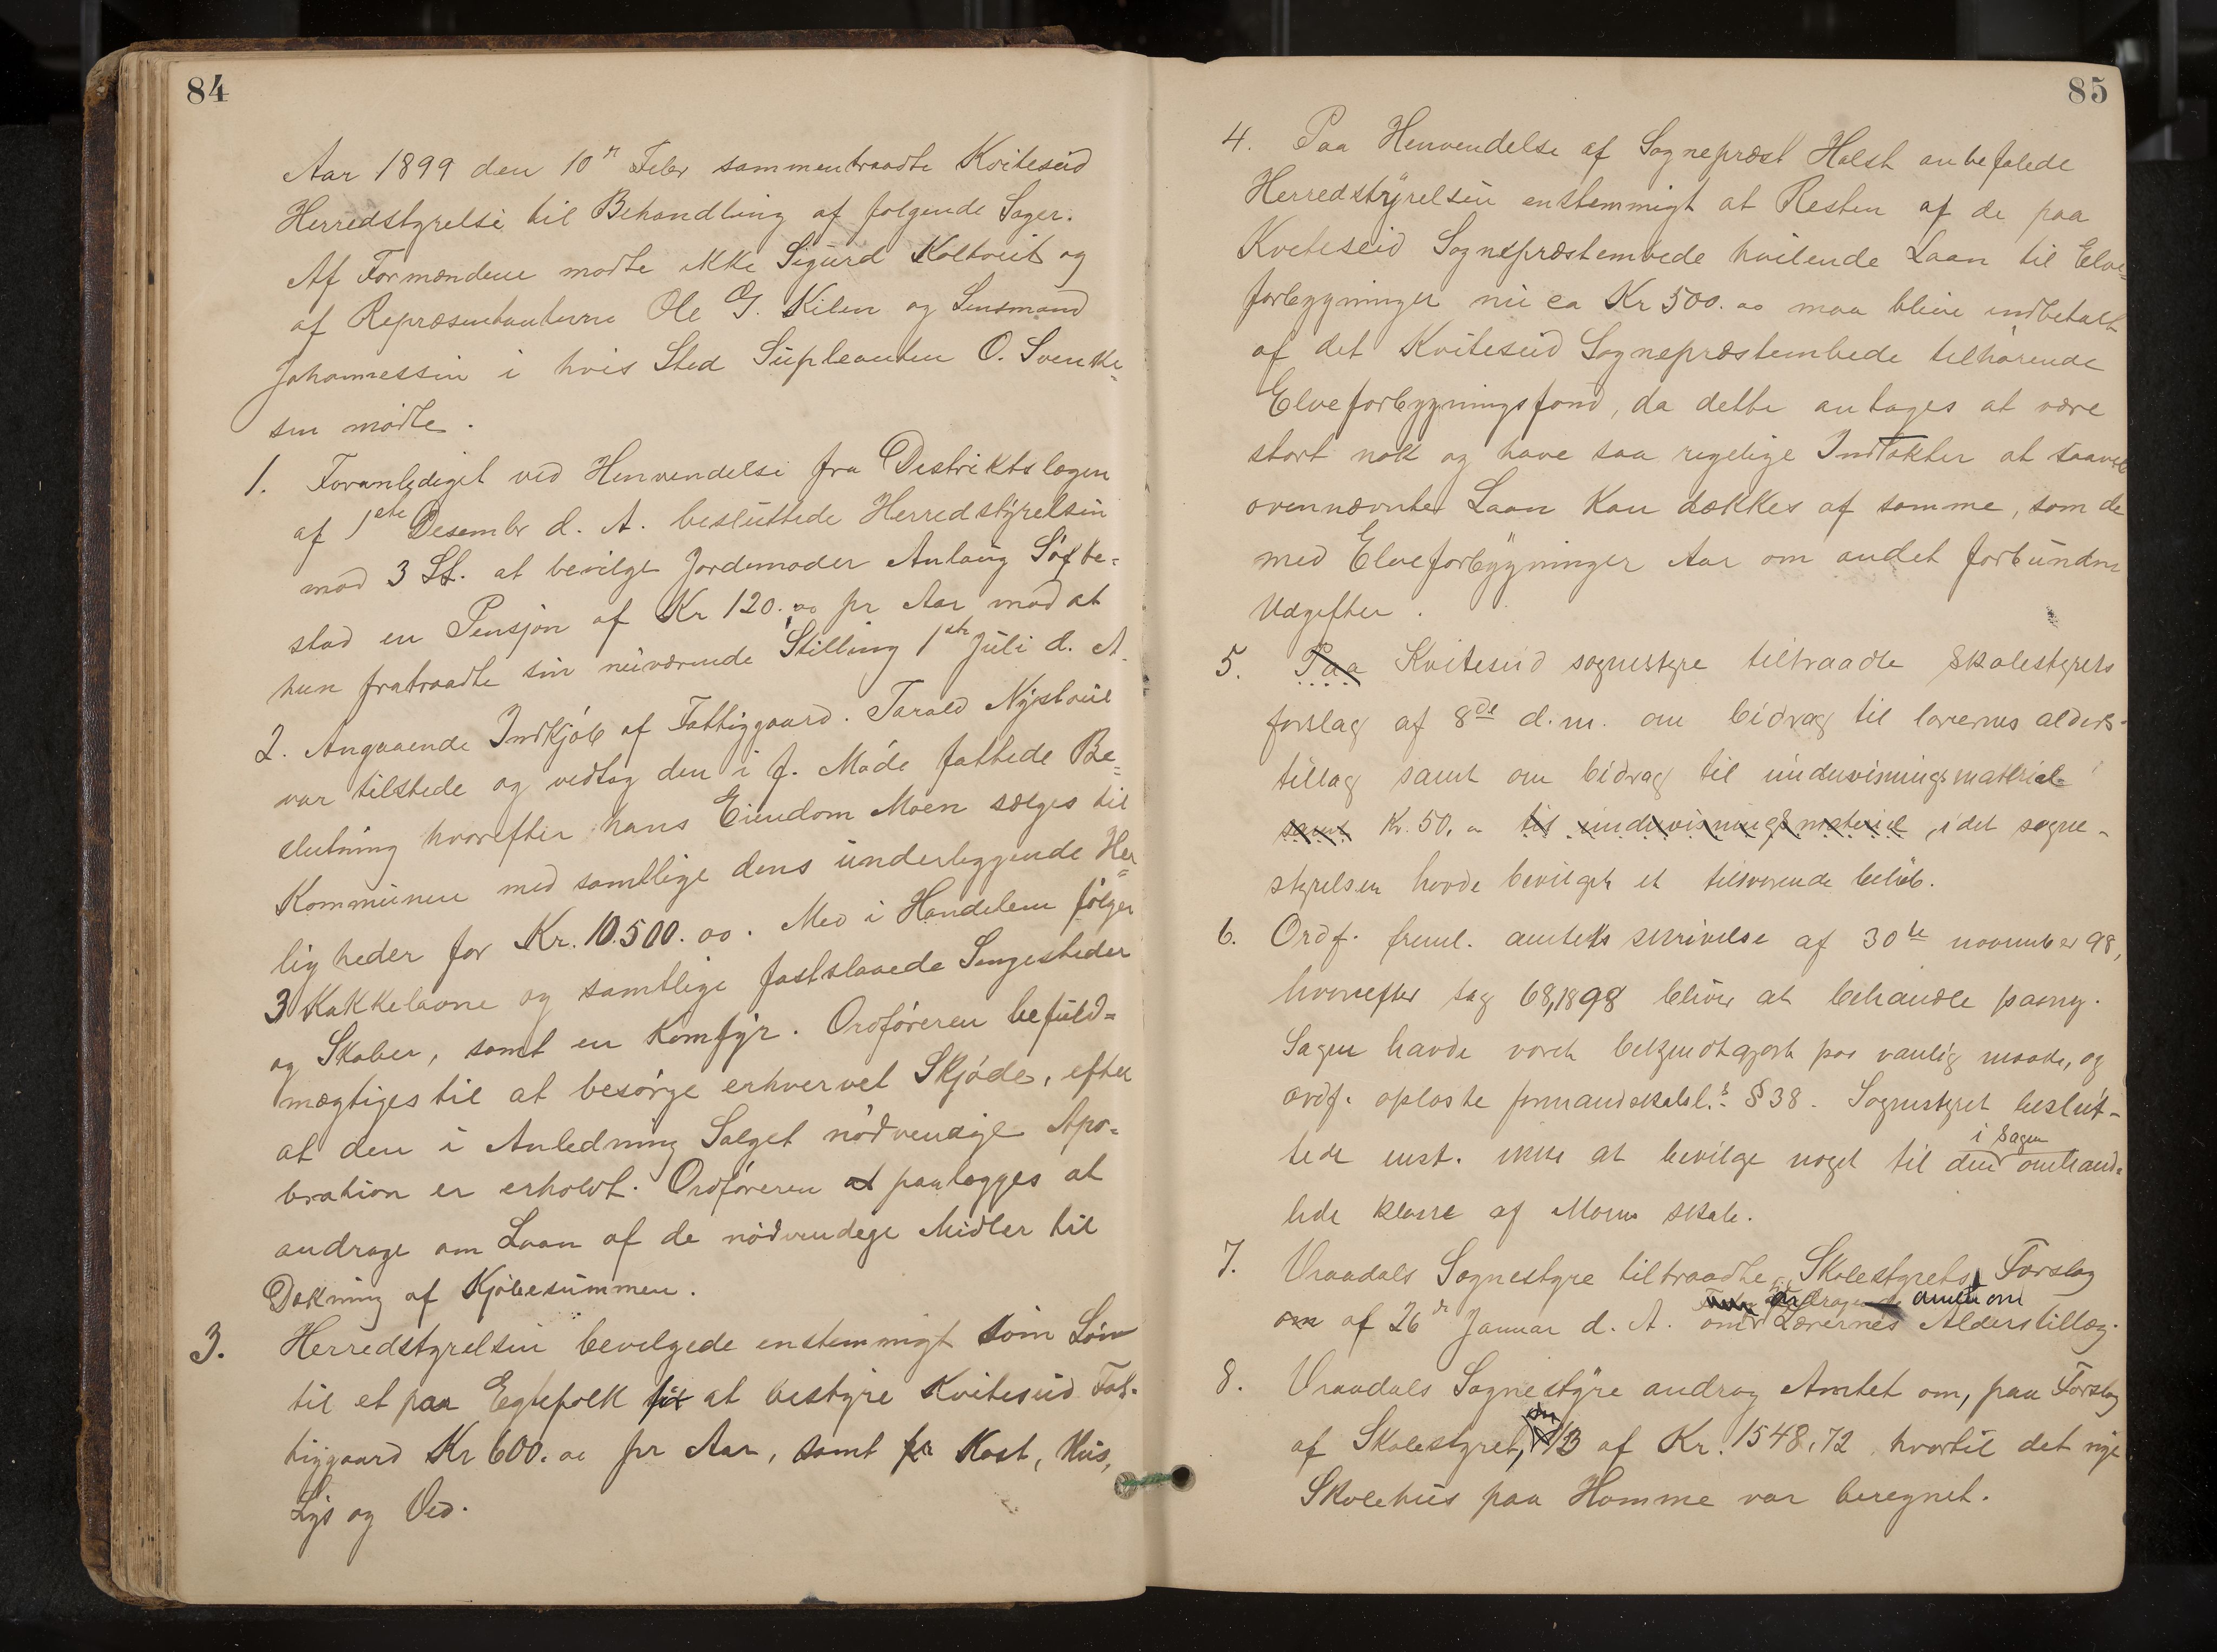 84
Aar 1899 den 10de Febr sammentraadte Kviteseid
Herredstyrelse til Behandling af følgende Sager.
Af Formændene mødte ikke Sigurd Koltveit og
af Repræsentanterne Ole G. Kilen og Lensmand
Johannessen i hvis Sted Supleanten O. Svenke-
sen mødte.
1. Foranlediget ved Henvendelse fra Distriktslægen
af 1ste Desembr d. A. besluttede Herredstyrelsen
mod 3 St. at bevilge Jordemoder Anlaug Søfte-
stad en Pensjon af Kr 120.00 pr Aar mod at
hun fratraadte sin nuværende Stilling 1ste Juli d. A.
2. Angaaende Indkjøb af Fattiggaard. Tarald Nystveit
var tilstede og vedtog den i f. Møde fattede Be=
slutning hvorefter hans Eiendom Moen sælges til
Kommunen med samtlige dens underliggende Her=
ligheder for Kr. 10.500.00. Med i Handelen følger
3 Kakkelovne og samtlige fastslaaede Sengesteder
og Skaber, samt en Komfyr. Ordføreren befuld=
mægtiges til at besørge erhvervet Skjøde, efter
at den i Anledning Salget nødvendige Apro=
bration er erholdt. Ordføreren at paalægges at
andrage om Laan af de nødvendege Midler til
Dækning af Kjøbesummen.
3. Herredstyrelsen bevilgede enstemmigt som Løn
til et paa Egtefolk for at bestyre Kviteseid Fat-
tiggaard Kr 600.00 pr Aar, samt fr Kost, Hus,
Lys og Ved.
85
4. Paa Henvendelse af Sognepræst Holst anbefalede
Herredstyrelsen enstemmigt at Resten af de paa
Kviteseid Sognepræstembede hvilende Laan til Elve=
forbygninger nu ca Kr 500.00 maa blive indbetalt
af det Kviteseid Sognepræstembede tilhørende
Elveforbygningsfond, da dette antages at være
stort nok og have saa rigelige Indtækter at saavel
ovennævnte Laan kan dækkes af samme, som de
med Elveforbygninger Aar om andet forbundne
Udgifter.
5. Paa Kviteseid sognestyre tiltraadte skolestyrets
forslag af 8de d.m. om bidrag til lærernes alders-
tillæg samt om bidrag til undervisningsmateriel
samt Kr. 50.00 til undervisningsmateriel, idet sogne-
styrelsen havde bevilget et tilsvarende beløb.
6. Ordf. freml. amtets skrivelse af 30te november 98,
hvorefter sag 68,1898 bliver at behandle paany.
Sagen havde været bekjendtgjort paa vanlig maade, og
ordf. oplæste formandskabsl.s § 38. Sognestyret beslut-
tede enst. ikke at bevilge noget til den i sagen omhand=
lede klasse af Moens skole.
7. Vraadals Sognestyre tiltraadte Skolestyrets Forslag
om af 26de Januar d. A. om Lærernes Alderstillæg.
8. Vraadals Sognestyre androg Amtet om, paa Forslag
af Skolestyret, 1/3 af Kr. 1548,72, hvortil det nye
Skolehus paa Homme var beregnet.